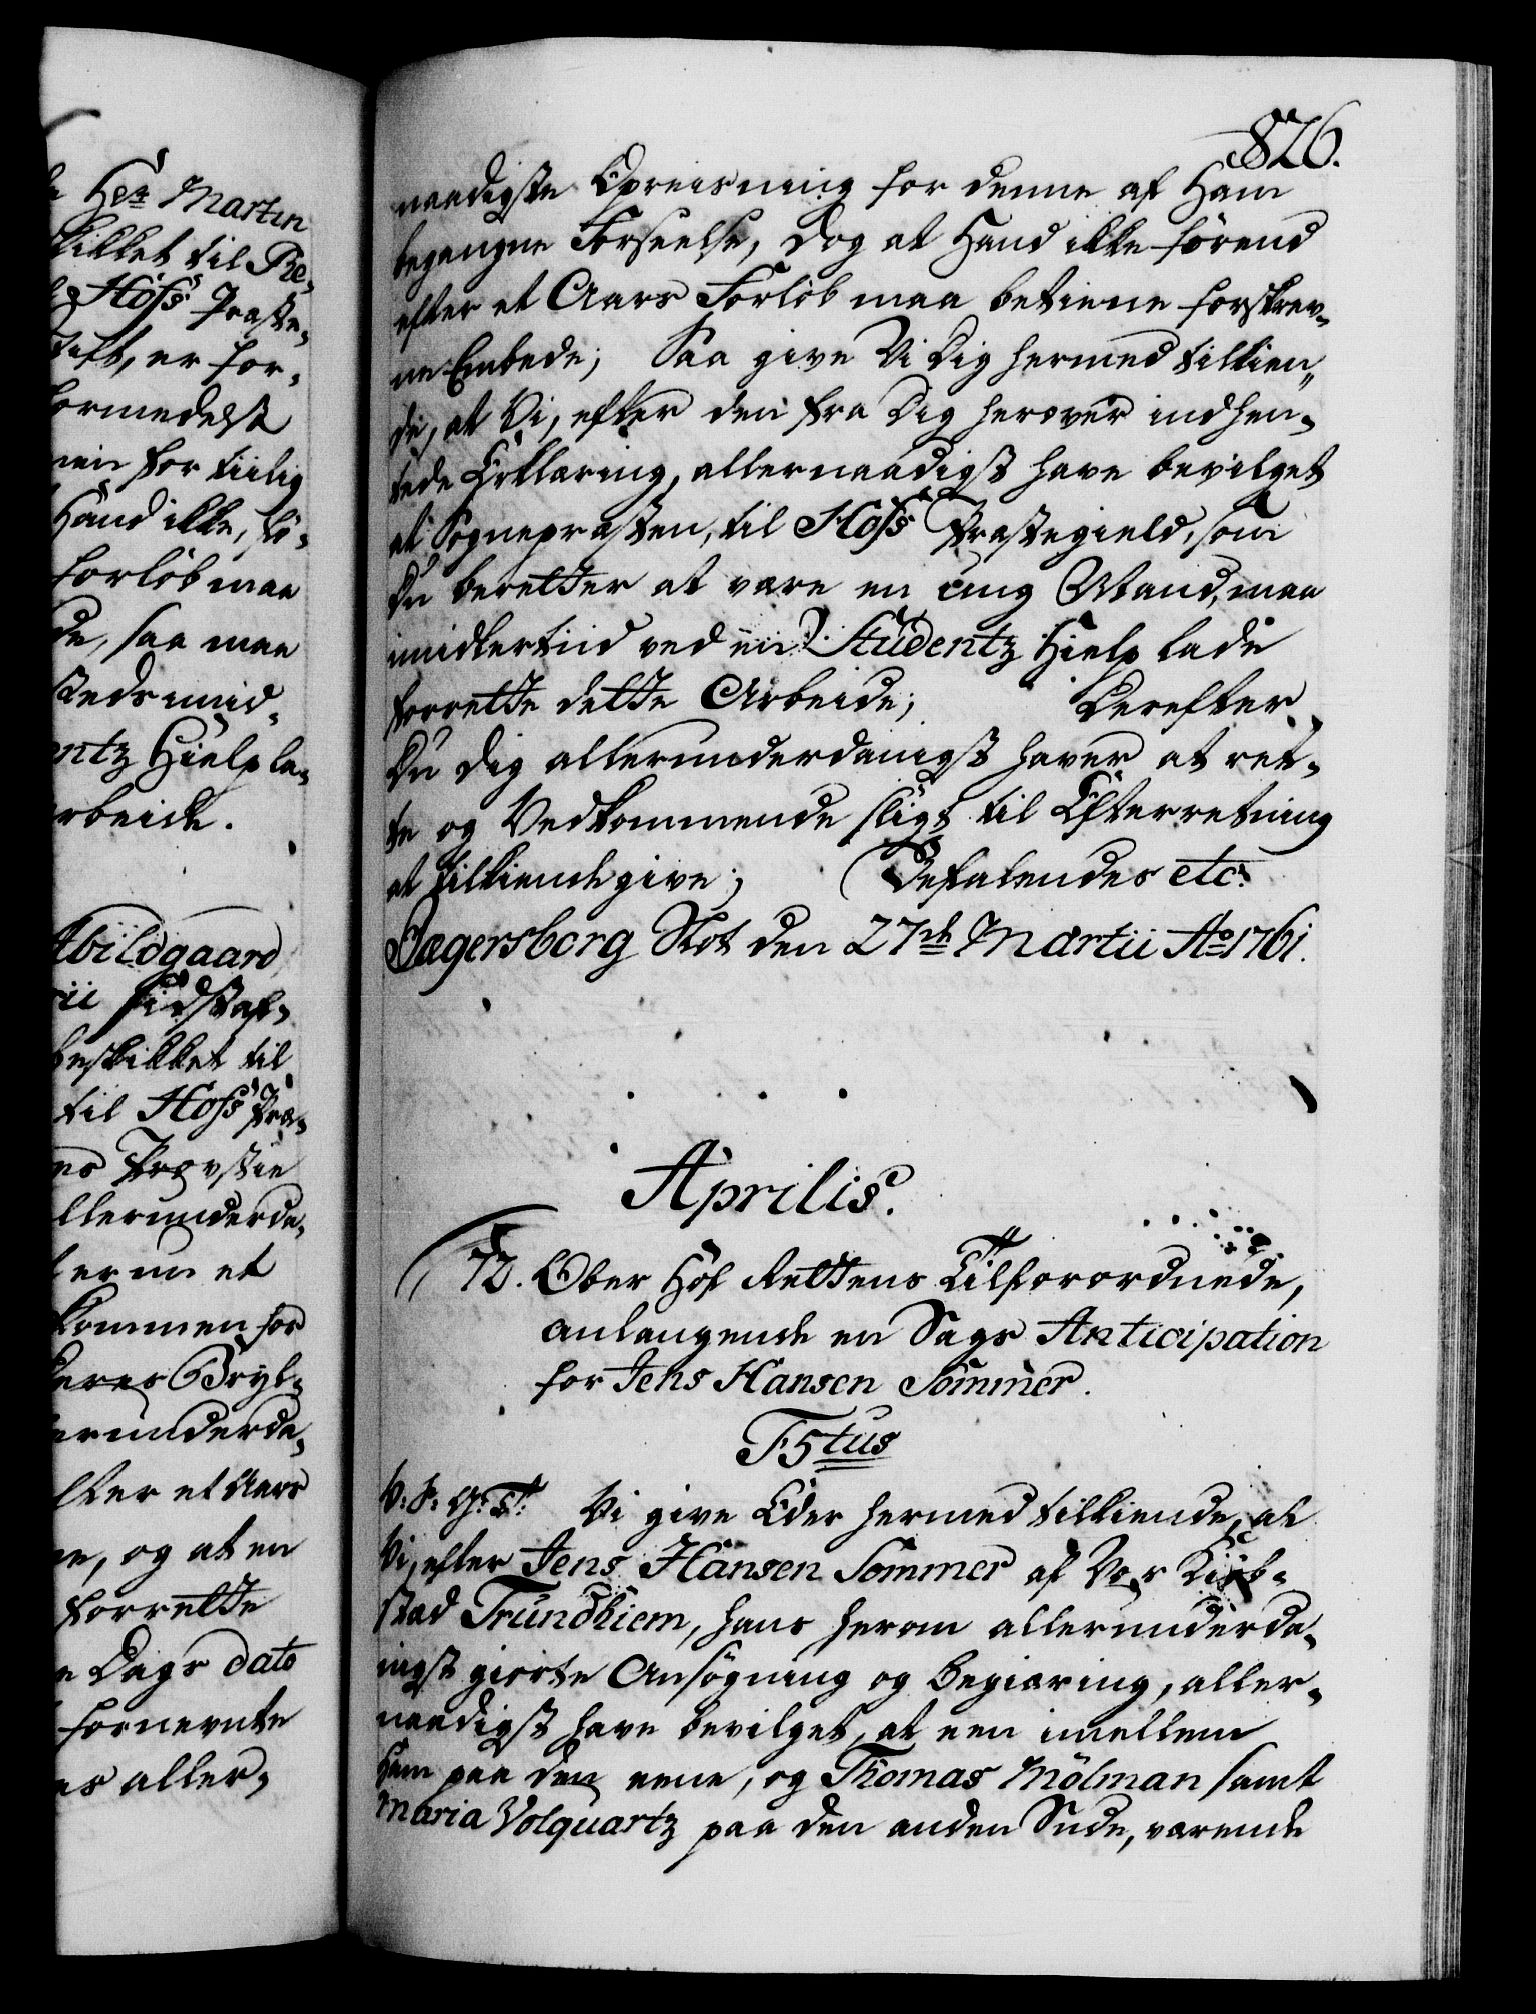 e Hr. Martin
skikket til Re-
og Hofs Præste-
tift, er for-
formedelst
men for tiilig
Hand ikke, fø-
forløb maa
de, saa maa
steds imid-
entz Hielp la-
rbeide.
Abildgaard
rii sidstaf-
beskikket til
til Hofs Præ-
es Provstie
llerunderda-
er nu et
kommen for
deres Bryl-
erunderda-
fter et Aars
ne, og at en
forrette
e Dags dato
fornevnte
es aller-
826.
naadigste Opreisning for denne af Ham
begangne Forseelse, dog at Hand ikke førend
efter et Aars Forløb maa betiene forskrev-
ne Embede; Saa give Vi Dig hermed tilkien-
de, at Vi, efter den fra Dig herover indhen-
tede Erklæring, allernaadigst have bevilget
at Sognepræsten, til Hofs Præstegield, som
Du beretter at være en ung Mand, maa
imidlertiid ved een Studentz Hielp lade
forrette dette Arbeide; Derefter
Du dig allerunderdanigst haver at ret-
te og Vedkommende sligt til Efterretning
at tilkiendegive; Befalendes etc.
Jægersborg Slot den 27de Martii Ao 1761.
Aprilis.
72. Ober Hof Rettens Tilforordnede,
anlangende en Sags Anticipation
for Jens Hansen Sommer.
F5tus
V: S: G: T: Vi give Eder hermed tilkiende, at
Vi, efter Jens Hansen Sommer af Vor Kiøb-
stad Trundhiem, hans herom allerunderda-
nigst giorte Ansøgning og Begiæring, aller-
naadigst have bevilget, at een imellem
Ham paa den eene, og Thomas Mölman samt
Maria Volquartz paa den anden Siide, værende